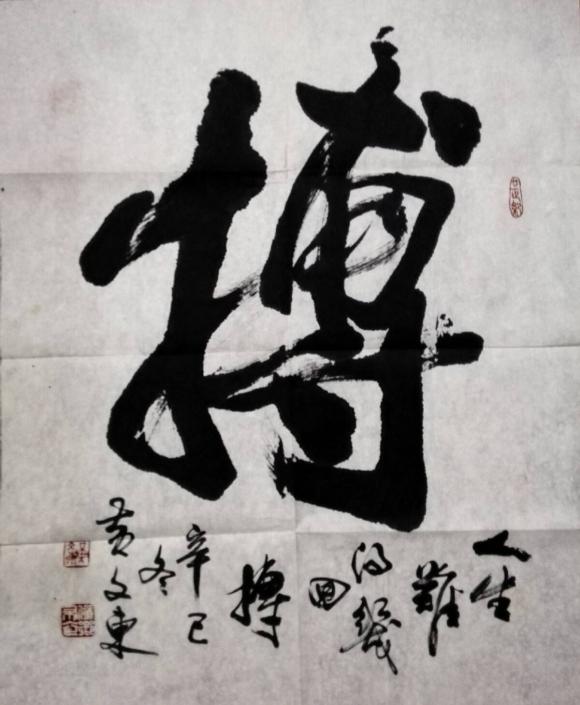 搏
人生
難
得幾
回
搏
辛巳
冬
黃文東